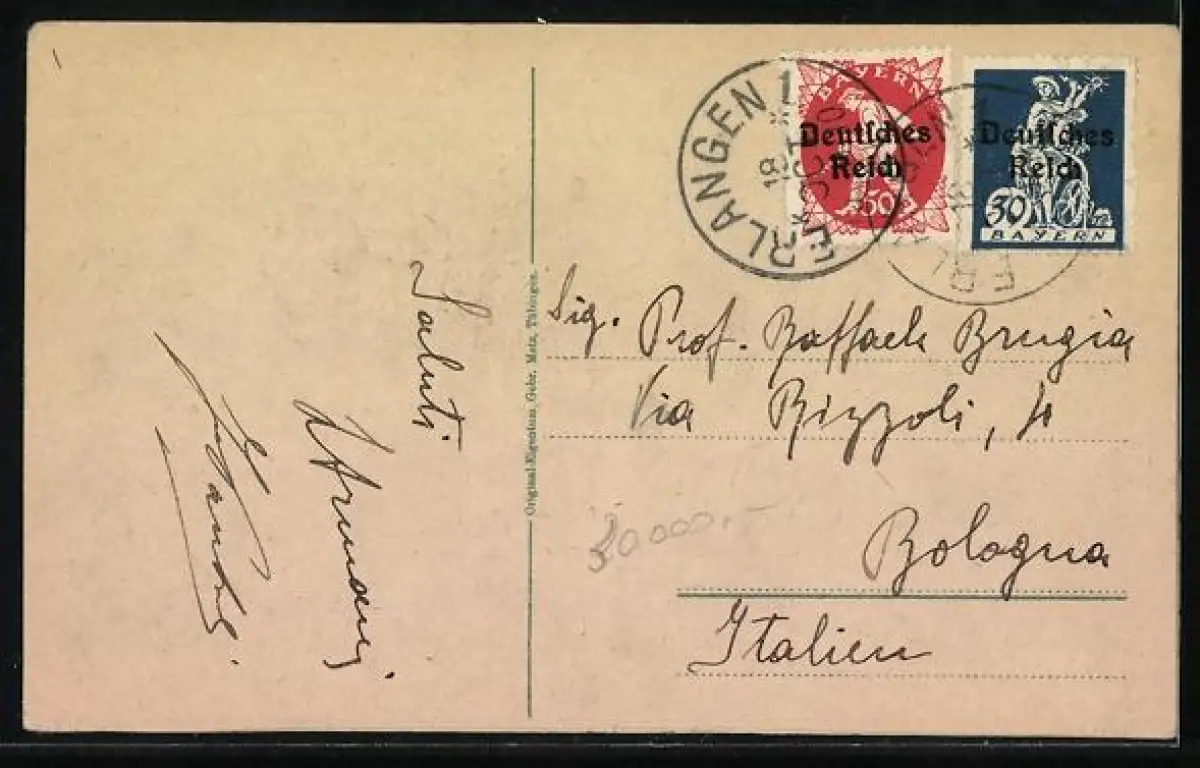 ERLANGEN 1
BAYERN
Deutsches
Reich
50
Deutsches
Reich
30
BAYERN
Sig. Prof. Raffaele Brugia
Via Rizzoli, 4
Bologna
Italien
30000.-
Saluti
Original-Eigentum, Gebr. Metz, Tübingen.